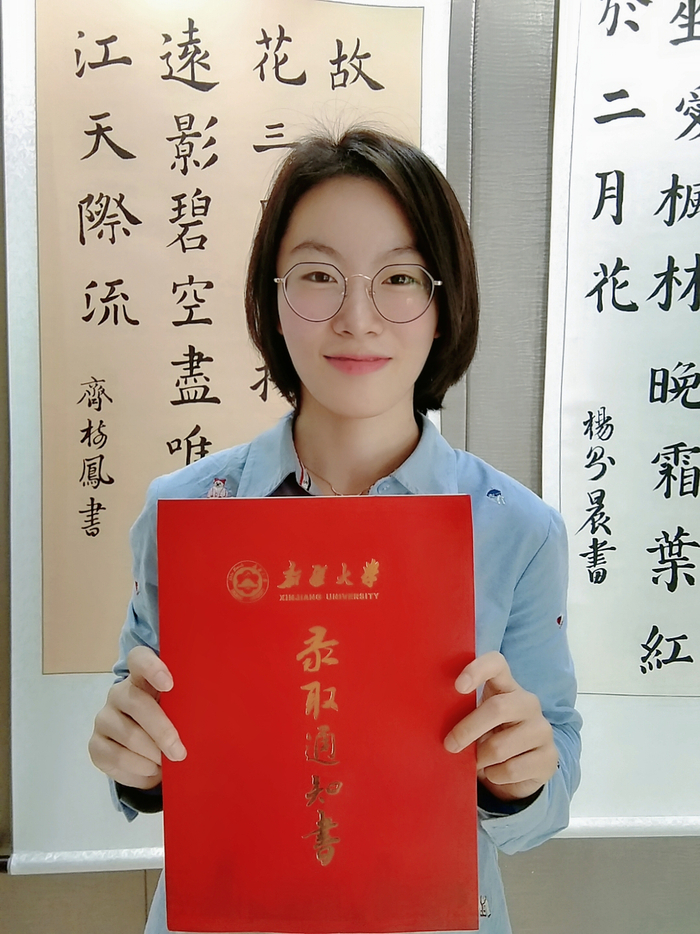 故
花三
遠影碧空盡唯
江天際流
坐愛楓林晚霜葉紅
於二月花
晨書
新疆大学
XINJIANG UNIVERSITY
录取通知書